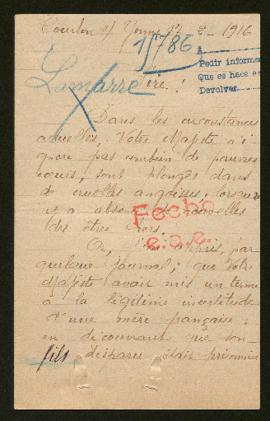 Courlon s/ Yonne 1916
15786
Pedir informes
Que se hace en
Devolver.
Lamarre
Sire,
Dans les circonstances
actuelles, Votre Majesté n'i-
gnore pas combien de pauvres
cœurs, sont plongés dans
de cruelles angoisses, lorsqu'
il y a absence de nouvelles
des être chers.
Fecho
Or, appris, par
quelque journal; que Votre
Majesté avait mis un terme
à la légitime incertitude
d'une mère française:
en découvrant que son
fils, disparu était prisonnier